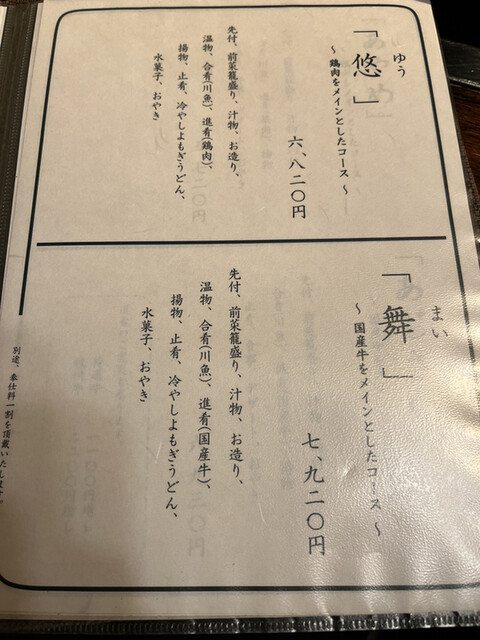 ゆう
「悠」
～ 鶏肉をメインとしたコース ～
六、八二〇円
先付、前菜籠盛り、汁物、お造り、
温物、合肴(川魚)、進肴(鶏肉)、
揚物、止肴、冷やしよもぎうどん、
水菓子、おやき
まい
「舞」
～ 国産牛をメインとしたコース ～
七、九二〇円
先付、前菜籠盛り、汁物、お造り、
温物、合肴(川魚)、進肴(国産牛)、
揚物、止肴、冷やしよもぎうどん、
水菓子、おやき
別途、奉仕料一割を頂戴いたします。